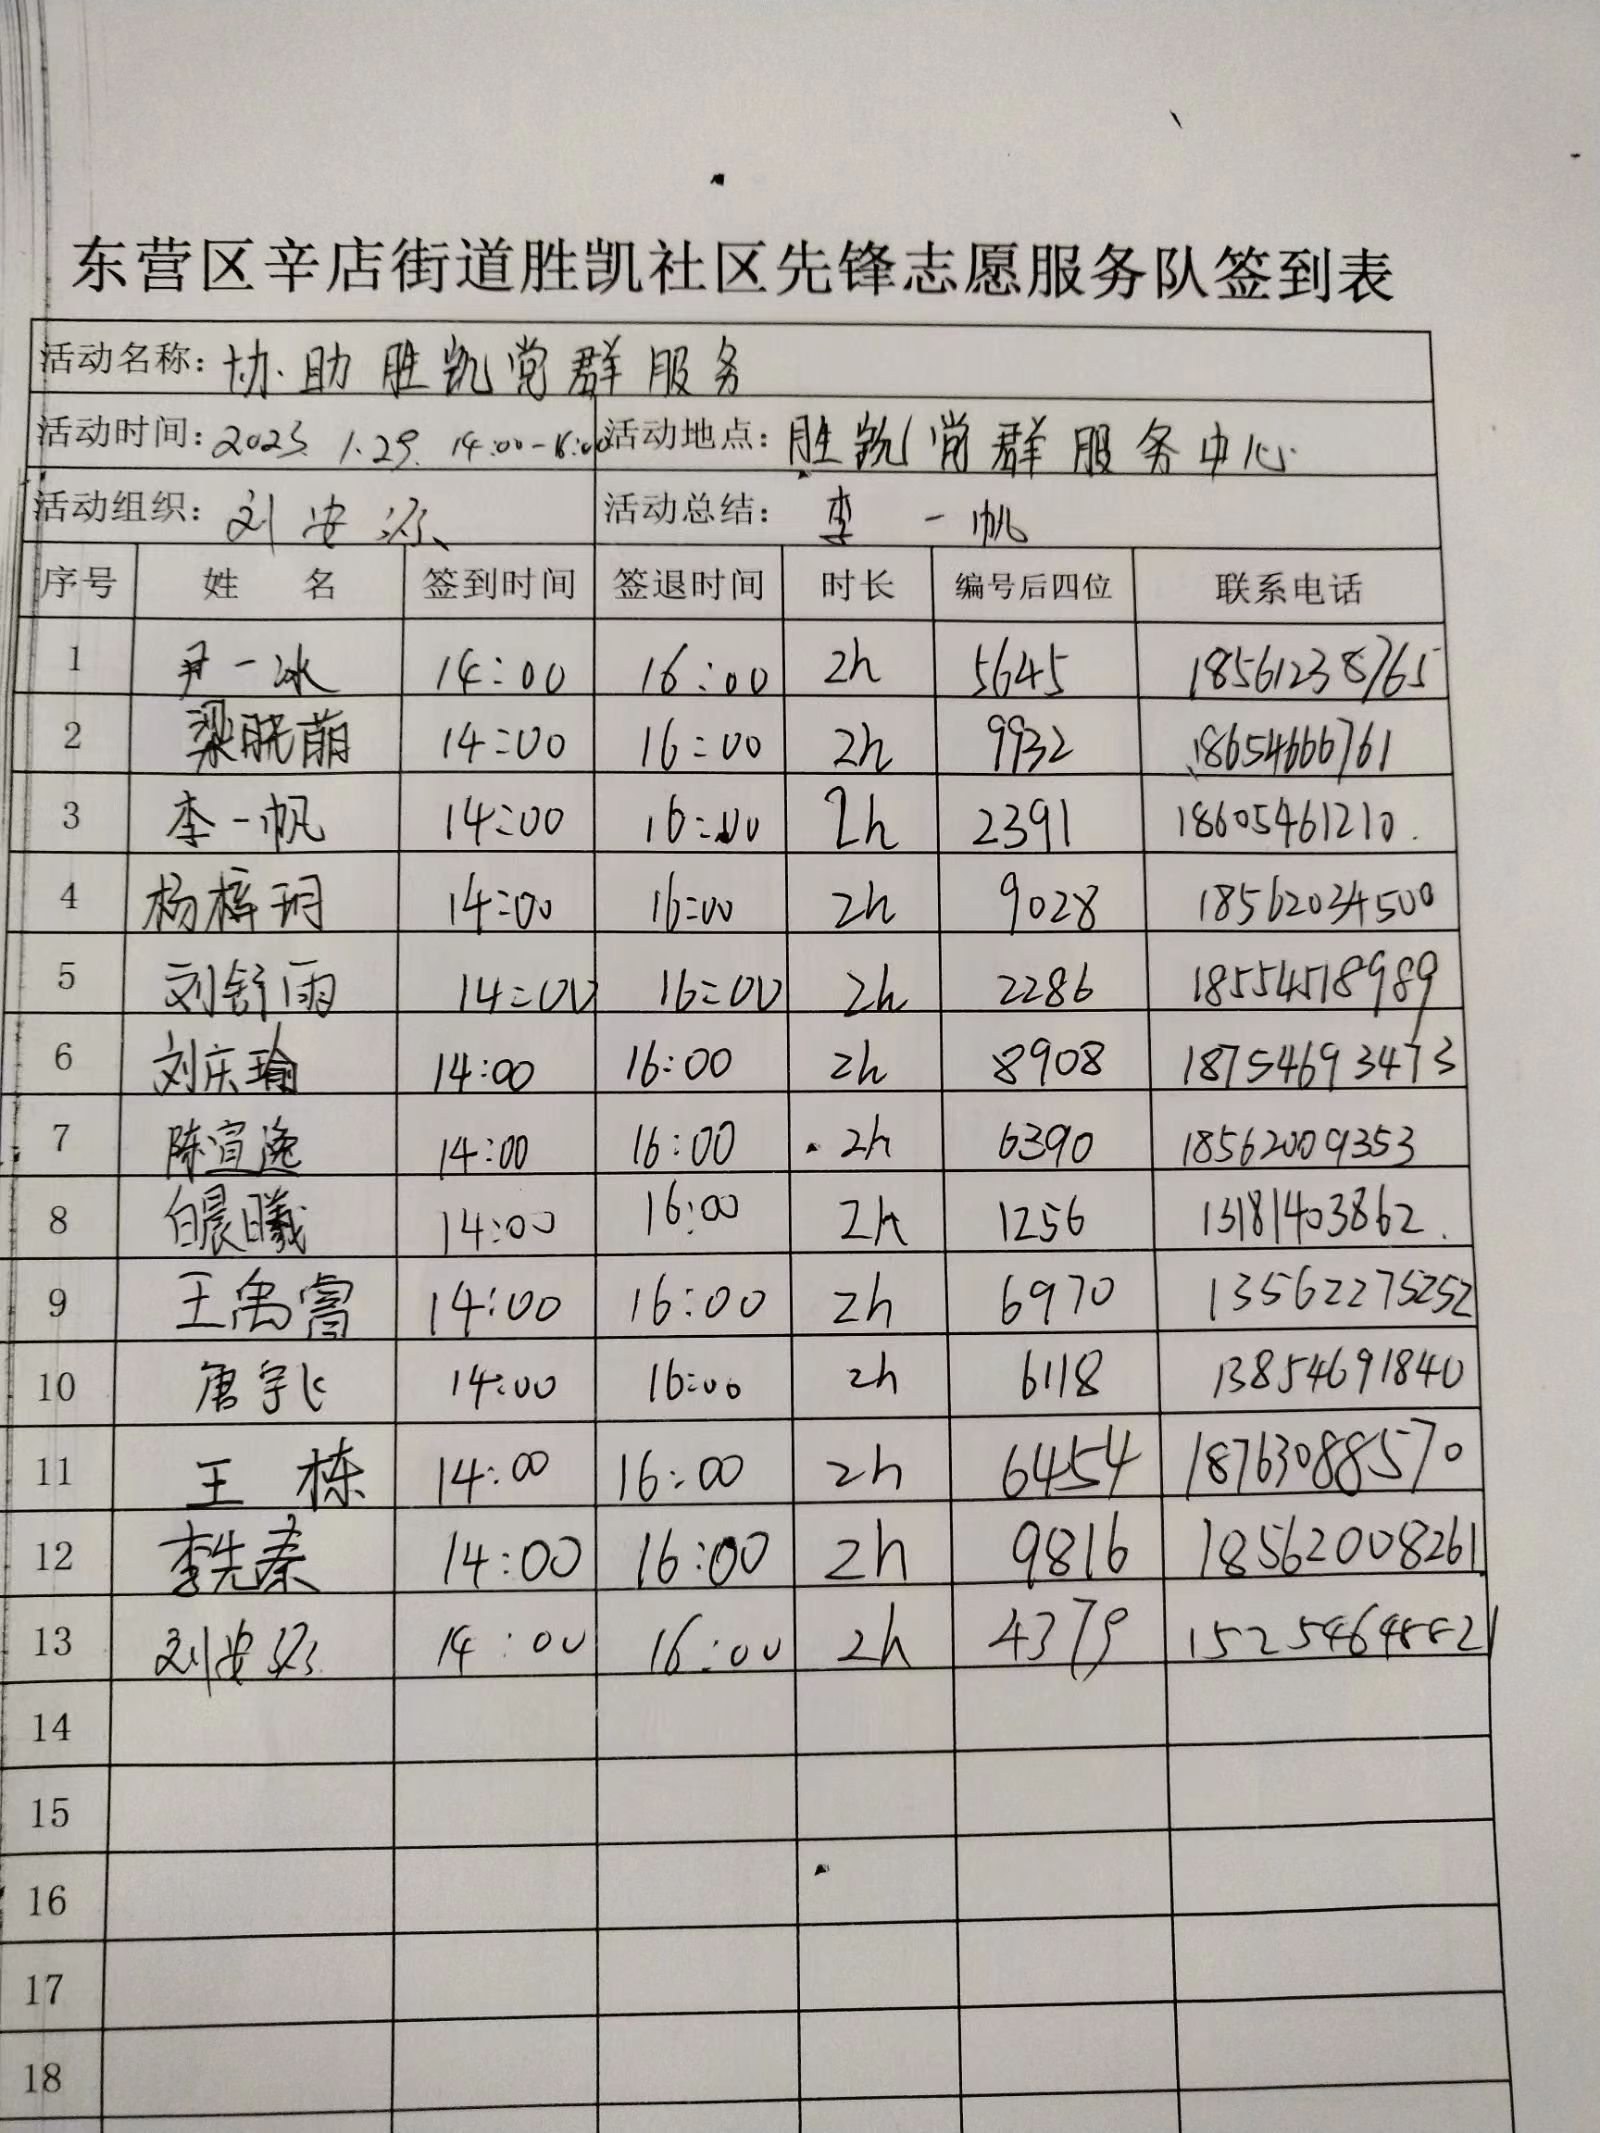 东营区辛店街道胜凯社区先锋志愿服务队签到表
活动名称: 协助胜凯党群服务
活动时间: 2023. 1.29. 14:00-16:00 活动地点: 胜凯党群服务中心
活动组织: 刘安 活动总结: 李一帆
序号 姓 名 签到时间 签退时间 时长 编号后四位 联系电话
1 尹一冰 14:00 16:00 2h 5645 18561238765
2 梁晓萌 14:00 16:00 2h 9932 18654666761
3 李一帆 14:00 16:00 2h 2391 18605461210.
4 杨梓玥 14:00 16:00 2h 9028 18562034500
5 刘舒雨 14:00 16:00 2h 2286 18554518989
6 刘庆瑜 14:00 16:00 2h 8908 18754693473
7 陈宣逸 14:00 16:00 2h 6390 18562009353
8 白晨曦 14:00 16:00 2h 1256 13181403862.
9 王禹睿 14:00 16:00 2h 6970 13562275252
10 唐宇飞 14:00 16:00 2h 6118 13854691840
11 王 栋 14:00 16:00 2h 6454 18763088570
12 李先秦 14:00 16:00 2h 9816 18562008261
13 刘安 14:00 16:00 2h 4379
14
15
16
17
18